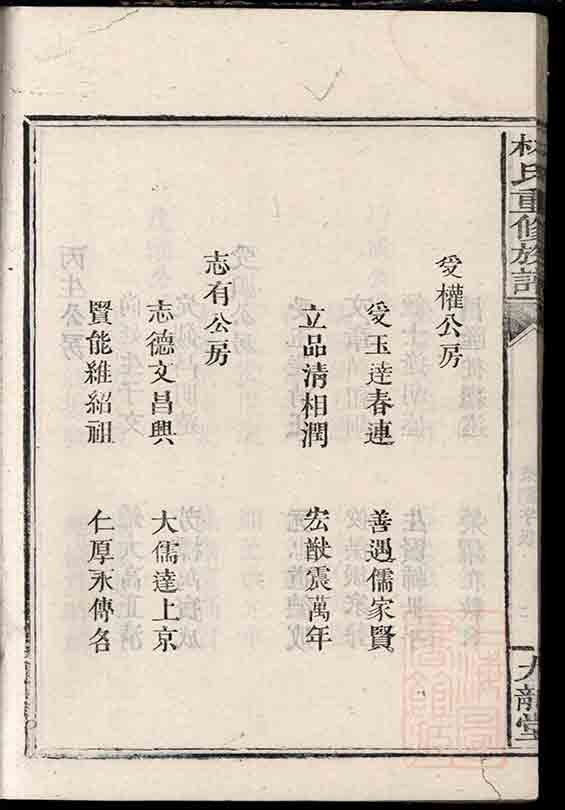 林氏重修族譜
九龍堂
受權公房
受玉達春連
善遇儒家賢
立品清相潤
宏猷震萬年
志有公房
志德文昌興
大儒達上京
賢能維紹祖
仁厚永傳名